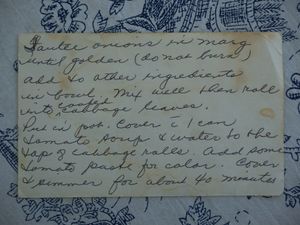 Sautee onions in marg
until golden (do not burn)
add to other ingredients
in bowl. Mix well then roll
into cooked cabbage leaves.
Put in pot. Cover c̄ 1 can
tomato soup & water to the
top of cabbage rolls. Add some
tomato paste for color. Cover
& simmer for about 40 minutes